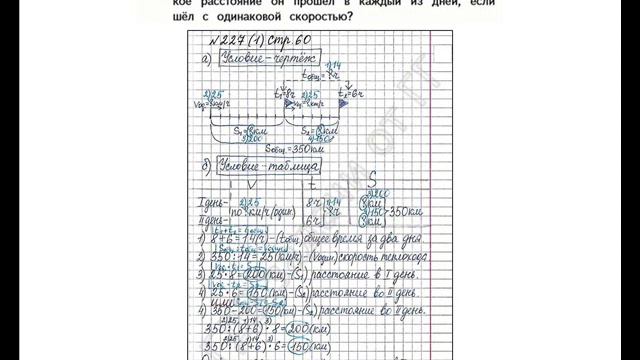 кое расстояние он прошёл в каждый из дней, если
шёл с одинаковой скоростью?
№227(1) стр.60
а) Условие-чертёж
1)14
tобщ.=?ч
2)25 t₁=8ч 2)25 t₂=6ч
Vод=?км/ч Vод=?км/ч
S₁=?км S₂=?км
3)200 4)150
Sобщ.=350км
б) Условие-таблица
V t S
I день- 2)25 8ч 1)14 3)200 ?км
по ?км/ч(один.) ?ч 350км
II день- 6ч 4)150 ?км
t₁+t₂=tобщ
1) 8+6=14(ч)-(tобщ) общее время за два дня.
2) 350:14=25(км/ч)-(Vодин) скорость теплохода
3) 25·8=200(км)-(S₁) расстояние в I день.
4) 25·6=150(км)-(S₂) расстояние во II день.
или
4) 350-200=150(км)-(S₂) расстояние во II день.
2)25 1)14 3)
350:(8+6)·8=200(км)
2)25 1)14 3)
350:(8+6)·6=150(км)